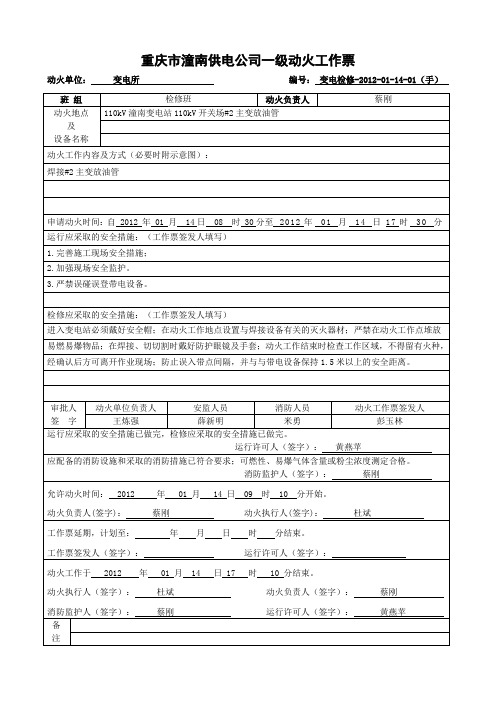 重庆市潼南供电公司一级动火工作票
动火单位： 变电所 编号： 变电检修-2012-01-14-01（手）
班 组 检修班 动火负责人 蔡刚
动火地点 110kV潼南变电站110kV开关场#2主变放油管
及
设备名称
动火工作内容及方式（必要时附示意图）：
焊接#2主变放油管
申请动火时间：自 2012 年 01 月 14 日 08 时 30 分至 2012 年 01 月 14 日 17 时 30 分
运行应采取的安全措施：（工作票签发人填写）
1.完善施工现场安全措施；
2.加强现场安全监护。
3.严禁误碰误登带电设备。
检修应采取的安全措施：（工作票签发人填写）
进入变电站必须戴好安全帽；在动火工作地点设置与焊接设备有关的灭火器材；严禁在动火工作点堆放
易燃易爆物品；在焊接、切切割时戴好防护眼镜及手套；动火工作结束时检查工作区域，不得留有火种，
经确认后方可离开作业现场；防止误入带点间隔，并与与带电设备保持1.5米以上的安全距离。
审批人 动火单位负责人 安监人员 消防人员 动火工作票签发人
签 字 王炼强 薛新明 米勇 彭玉林
运行应采取的安全措施已做完，检修应采取的安全措施已做完。
运行许可人（签字）： 黄燕苹
应配备的消防设施和采取的消防措施已符合要求；可燃性、易爆气体含量或粉尘浓度测定合格。
消防监护人（签字）： 蔡刚
允许动火时间： 2012 年 01 月 14 日 09 时 10 分开始。
动火负责人(签字)： 蔡刚 动火执行人(签字)： 杜斌
工作票延期，计划至： 年 月 日 时 分结束。
工作票签发人（签字）： 运行许可人（签字）：
动火工作于 2012 年 01 月 14 日 17 时 10 分结束。
动火执行人（签字）： 杜斌 动火负责人（签字）： 蔡刚
消防监护人（签字）： 蔡刚 运行许可人（签字）： 黄燕苹
备
注